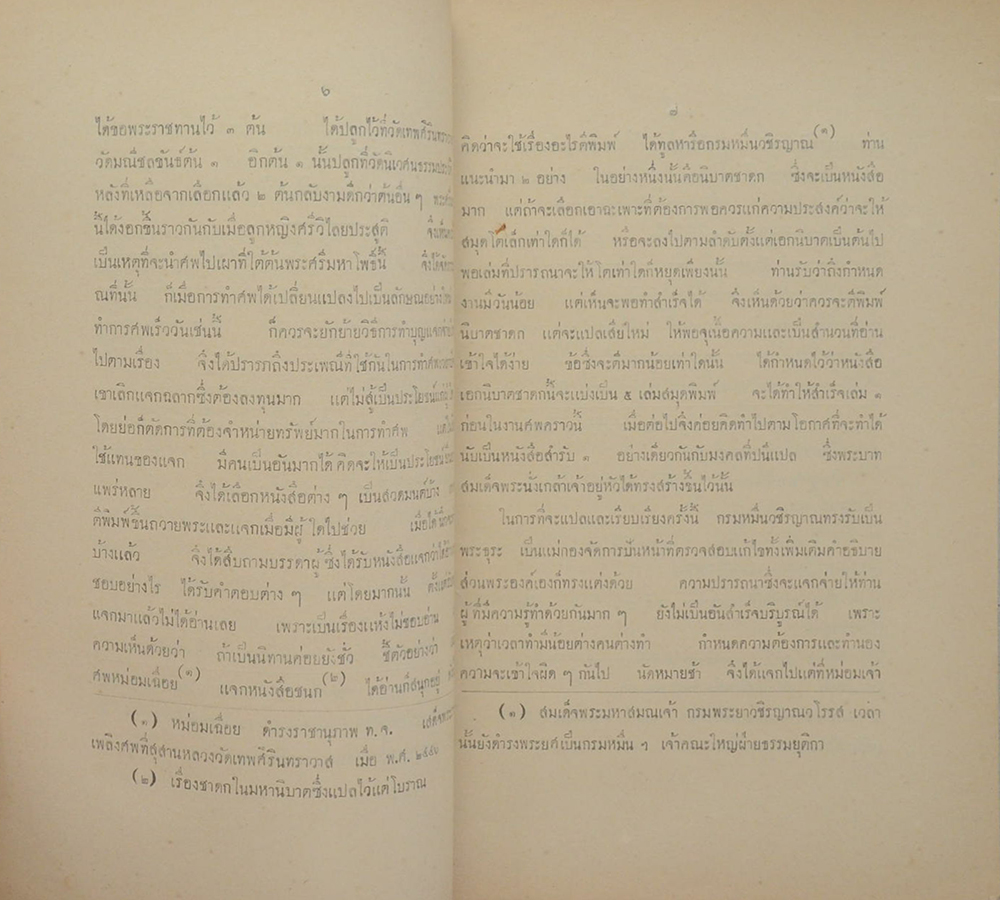 ๖
ได้ขอพระราชทานไว้ ๓ ต้น ได้ปลูกไว้ที่วัดเทพศิรินทรา
วัดมณีชลขันธ์ต้น ๑ อีกต้น ๑ นั้นปลูกที่วัดนิเวศน์ธรรมประวัติ
หลังที่เหลือจากเลือกแล้ว ๒ ต้นกลับงามดีกว่าต้นอื่น ๆ
นี้ได้งอกขึ้นราวกันกับเมื่อลูกหญิงศรีวิไลยประสูติ
เป็นเหตุที่จะนำศพไปเผาที่ใต้ต้นพระศรีมหาโพธิ์นี้ จึงได้
ณที่นั้น ก็เมื่อการทำศพได้เปลี่ยนแปลงไปเป็นลักษณอย่าง
ทำการศพเร็ววันเช่นนี้ ก็ควรจะยักย้ายวิธีการทำบุญแจก
ไปตามเรื่อง จึงได้ปรารภถึงประเพณีที่ใช้กันในการทำศพ
เขาเลิกแจกฉลากซึ่งต้องลงทุนมาก แต่ไม่สู้เป็นประโยชน์แก่ผู้
โดยย่อก็ตัดการที่ต้องจำหน่ายทรัพย์มากในการทำศพ
ใช้แทนของแจก มีคนเป็นอันมากได้คิดจะให้เป็นประโยชน์
แพร่หลาย จึงได้เลือกหนังสือต่าง ๆ เป็นสวดมนต์บ้าง
ตีพิมพ์ขึ้นถวายพระและแจกเมื่อมีผู้ใดไปช่วย เมื่อได้
บ้างแล้ว จึงได้สืบถามบรรดาผู้ซึ่งได้รับหนังสือแจกว่าได้
ชอบอย่างไร ได้รับคำตอบต่าง ๆ แต่โดยมากนั้น ตั้งแต่
แจกมาแล้วไม่ได้อ่านเลย เพราะเป็นเรื่องแห้งไม่ชอบอ่าน
ความเห็นด้วยว่า ถ้าเป็นนิทานค่อยยังชั่ว ชี้ตัวอย่างว่า
ศพหม่อมเฉื่อย(๑) แจกหนังสือชนก(๒) ได้อ่านก็สนุกอยู่
(๑) หม่อมเฉื่อย ดำรงราชานุภาพ ท.จ. เสด็จพระ
เพลิงศพที่สุสานหลวงวัดเทพศิรินทราวาส เมื่อ พ.ศ.
(๒) เรื่องชาดกในมหานิบาตซึ่งแปลไว้แต่โบราณ
๘
คิดว่าจะใช้เรื่องอะไรตีพิมพ์ ได้ทูลหารือกรมหมื่นวชิรญาณ(๑) ท่าน
แนะนำมา ๒ อย่าง ในอย่างหนึ่งนั้นคือนิบาตชาดก ซึ่งจะเป็นหนังสือ
มาก แต่ถ้าจะเลือกเอาฉะเพาะที่ต้องการพอควรแก่ความประสงค์ว่าจะให้
สมุดโตเล็กเท่าใดก็ได้ หรือจะลงไปตามลำดับตั้งแต่เอกนิบาตเป็นต้นไป
พอเล่มที่ปรารถนาจะให้โตเท่าใดก็หยุดเพียงนั้น ท่านรับว่าถึงกำหนด
งานมีวันน้อย แต่เห็นจะพอทำสำเร็จได้ จึงเห็นด้วยว่าควรจะตีพิมพ์
นิบาตชาดก แต่จะแปลเสียใหม่ ให้พอจุเนื้อความและเป็นสำนวนที่อ่าน
เข้าใจได้ง่าย ข้อซึ่งจะตีมากน้อยเท่าใดนั้น ได้กำหนดไว้ว่าหนังสือ
เอกนิบาตชาดกนี้จะแบ่งเป็น ๕ เล่มสมุดพิมพ์ จะได้ทำให้สำเร็จเล่ม ๑
ก่อนในงานศพคราวนี้ เมื่อต่อไปจึงค่อยคิดทำไปตามโอกาศที่จะทำได้
นับเป็นหนังสือสำรับ ๑ อย่างเดียวกันกับมงคลทีปนีแปล ซึ่งพระบาท
สมเด็จพระนั่งเกล้าเจ้าอยู่หัวได้ทรงสร้างขึ้นไว้นั้น
ในการที่จะแปลและเรียบเรียงครั้งนี้ กรมหมื่นวชิรญาณทรงรับเป็น
พระธุระ เป็นแม่กองจัดการปันหน้าที่ตรวจสอบแก้ไขทั้งเพิ่มเติมคำอธิบาย
ส่วนพระองค์เองก็ทรงแต่งด้วย ความปรารถนาซึ่งจะแจกจ่ายให้ท่าน
ผู้ที่มีความรู้ทำด้วยกันมาก ๆ ยังไม่เป็นอันสำเร็จบริบูรณ์ได้ เพราะ
เหตุว่าเวลาทำมีน้อยต่างคนต่างทำ กำหนดความต้องการและทำนอง
ความจะเข้าใจผิด ๆ กันไป นัดหมายช้า จึงได้แจกไปแต่ที่หม่อมเจ้า
(๑) สมเด็จพระมหาสมณเจ้า กรมพระยาวชิรญาณวโรรส เวลา
นั้นยังดำรงพระยศเป็นกรมหมื่น ฯ เจ้าคณะใหญ่ฝ่ายธรรมยุติกา